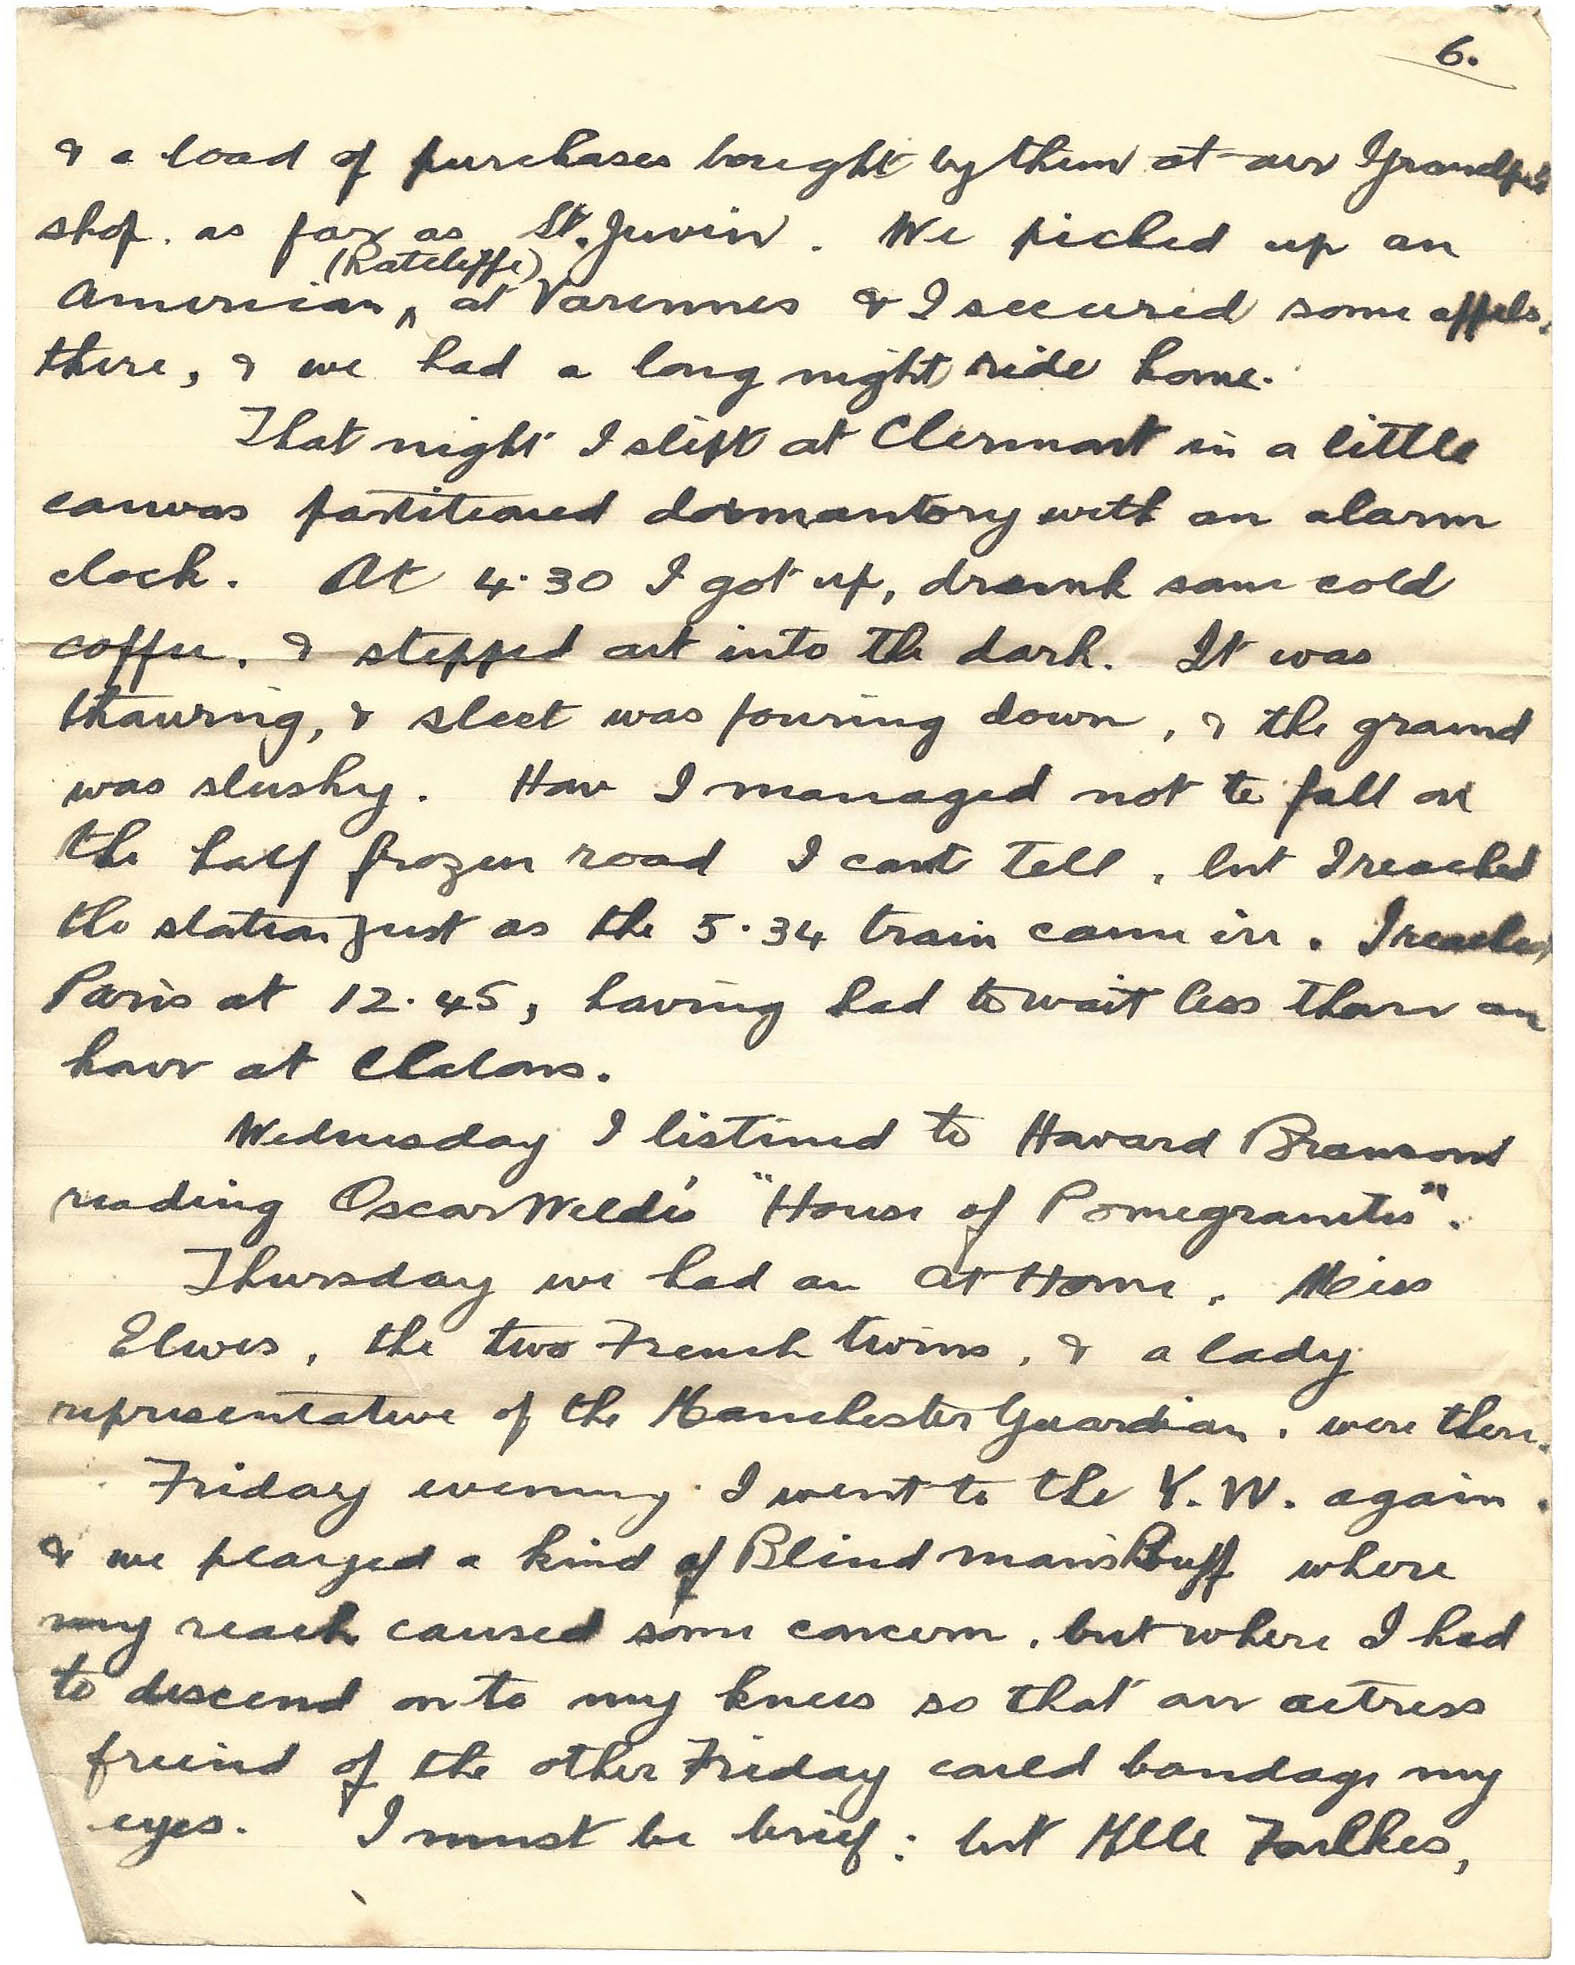 6.
& a load of purchases bought by them at our Grandpré
shop. as far as St. Juvin. We picked up an
(Ratcliffe)
American ^ at Varennes & I secured some
there, & we had a long night ride home.
That night I slept at Clermont in a little
canvas partitioned dormantory with an alarm
clock. At 4.30 I got up, drank some cold
coffee, & stepped out into the dark. It was
thawing, & sleet was pouring down, & the ground
was slushy. How I managed not to fall on
the half frozen road I cant tell, but I reached
the station just as the 5.34 train came in. I reached
Paris at 12.45, having had to wait less than an
hour at Chalons.
Wednesday I listened to Havard
reading Oscar Wilde's "House of Pomegranites".
Thursday we had an At Home. Miss
Elwes, the two French twins, & a lady
representative of the Manchester Guardian, were there.
Friday evening I went to the Y.W. again.
& we played a kind of Blind man's Buff where
my reach caused some concern, but where I had
to descend on to my knees so that our actress
freind of the other Friday could bandage my
eyes. I must be brief: but Mlle Foulkes,